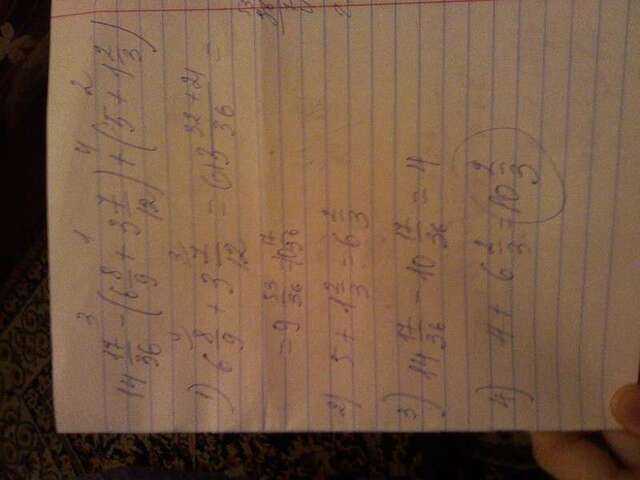 3 1 4 2
14 17/36 - (6 8/9 + 3 7/12) + (5 + 1 2/3)
1) 6 8/9 + 3 7/12 = 6+3 32+21/36 =
= 9 53/36 = 10 17/36
2) 5 + 1 2/3 = 6 2/3
3) 14 17/36 - 10 17/36 = 4
4) 4 + 6 2/3 = 10 2/3